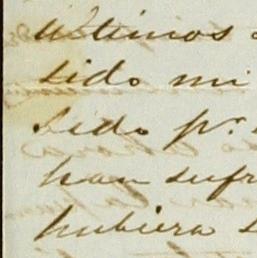 ultimos
sido mi
sido pr.
han sufr
hubiera